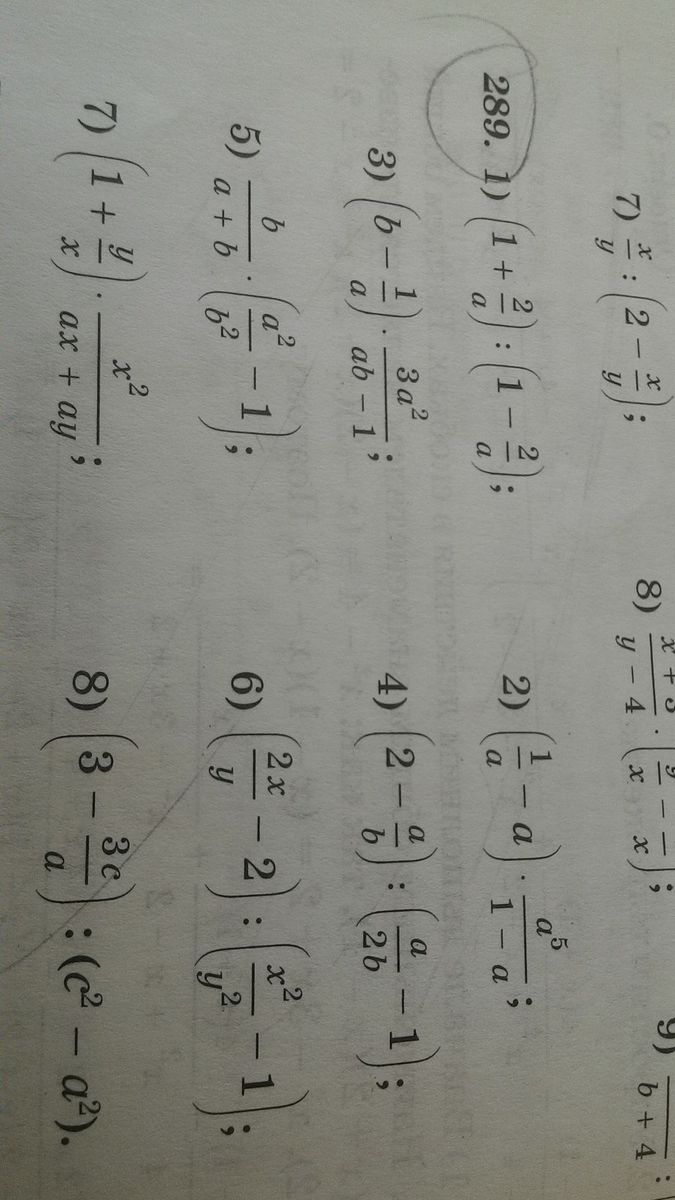 7) x/y : (2 − x/y); 8) y − 4 b + 4
289. 1) (1 + 2/a) : (1 − 2/a); 2) (1/a − a) · a⁵/(1 − a);
3) (b − 1/a) · 3a²/(ab − 1); 4) (2 − a/b) : (a/2b − 1);
5) b/(a + b) · (a²/b² − 1); 6) (2x/y − 2) : (x²/y² − 1);
7) (1 + y/x) · x²/(ax + ay); 8) (3 − 3c/a) : (c² − a²).